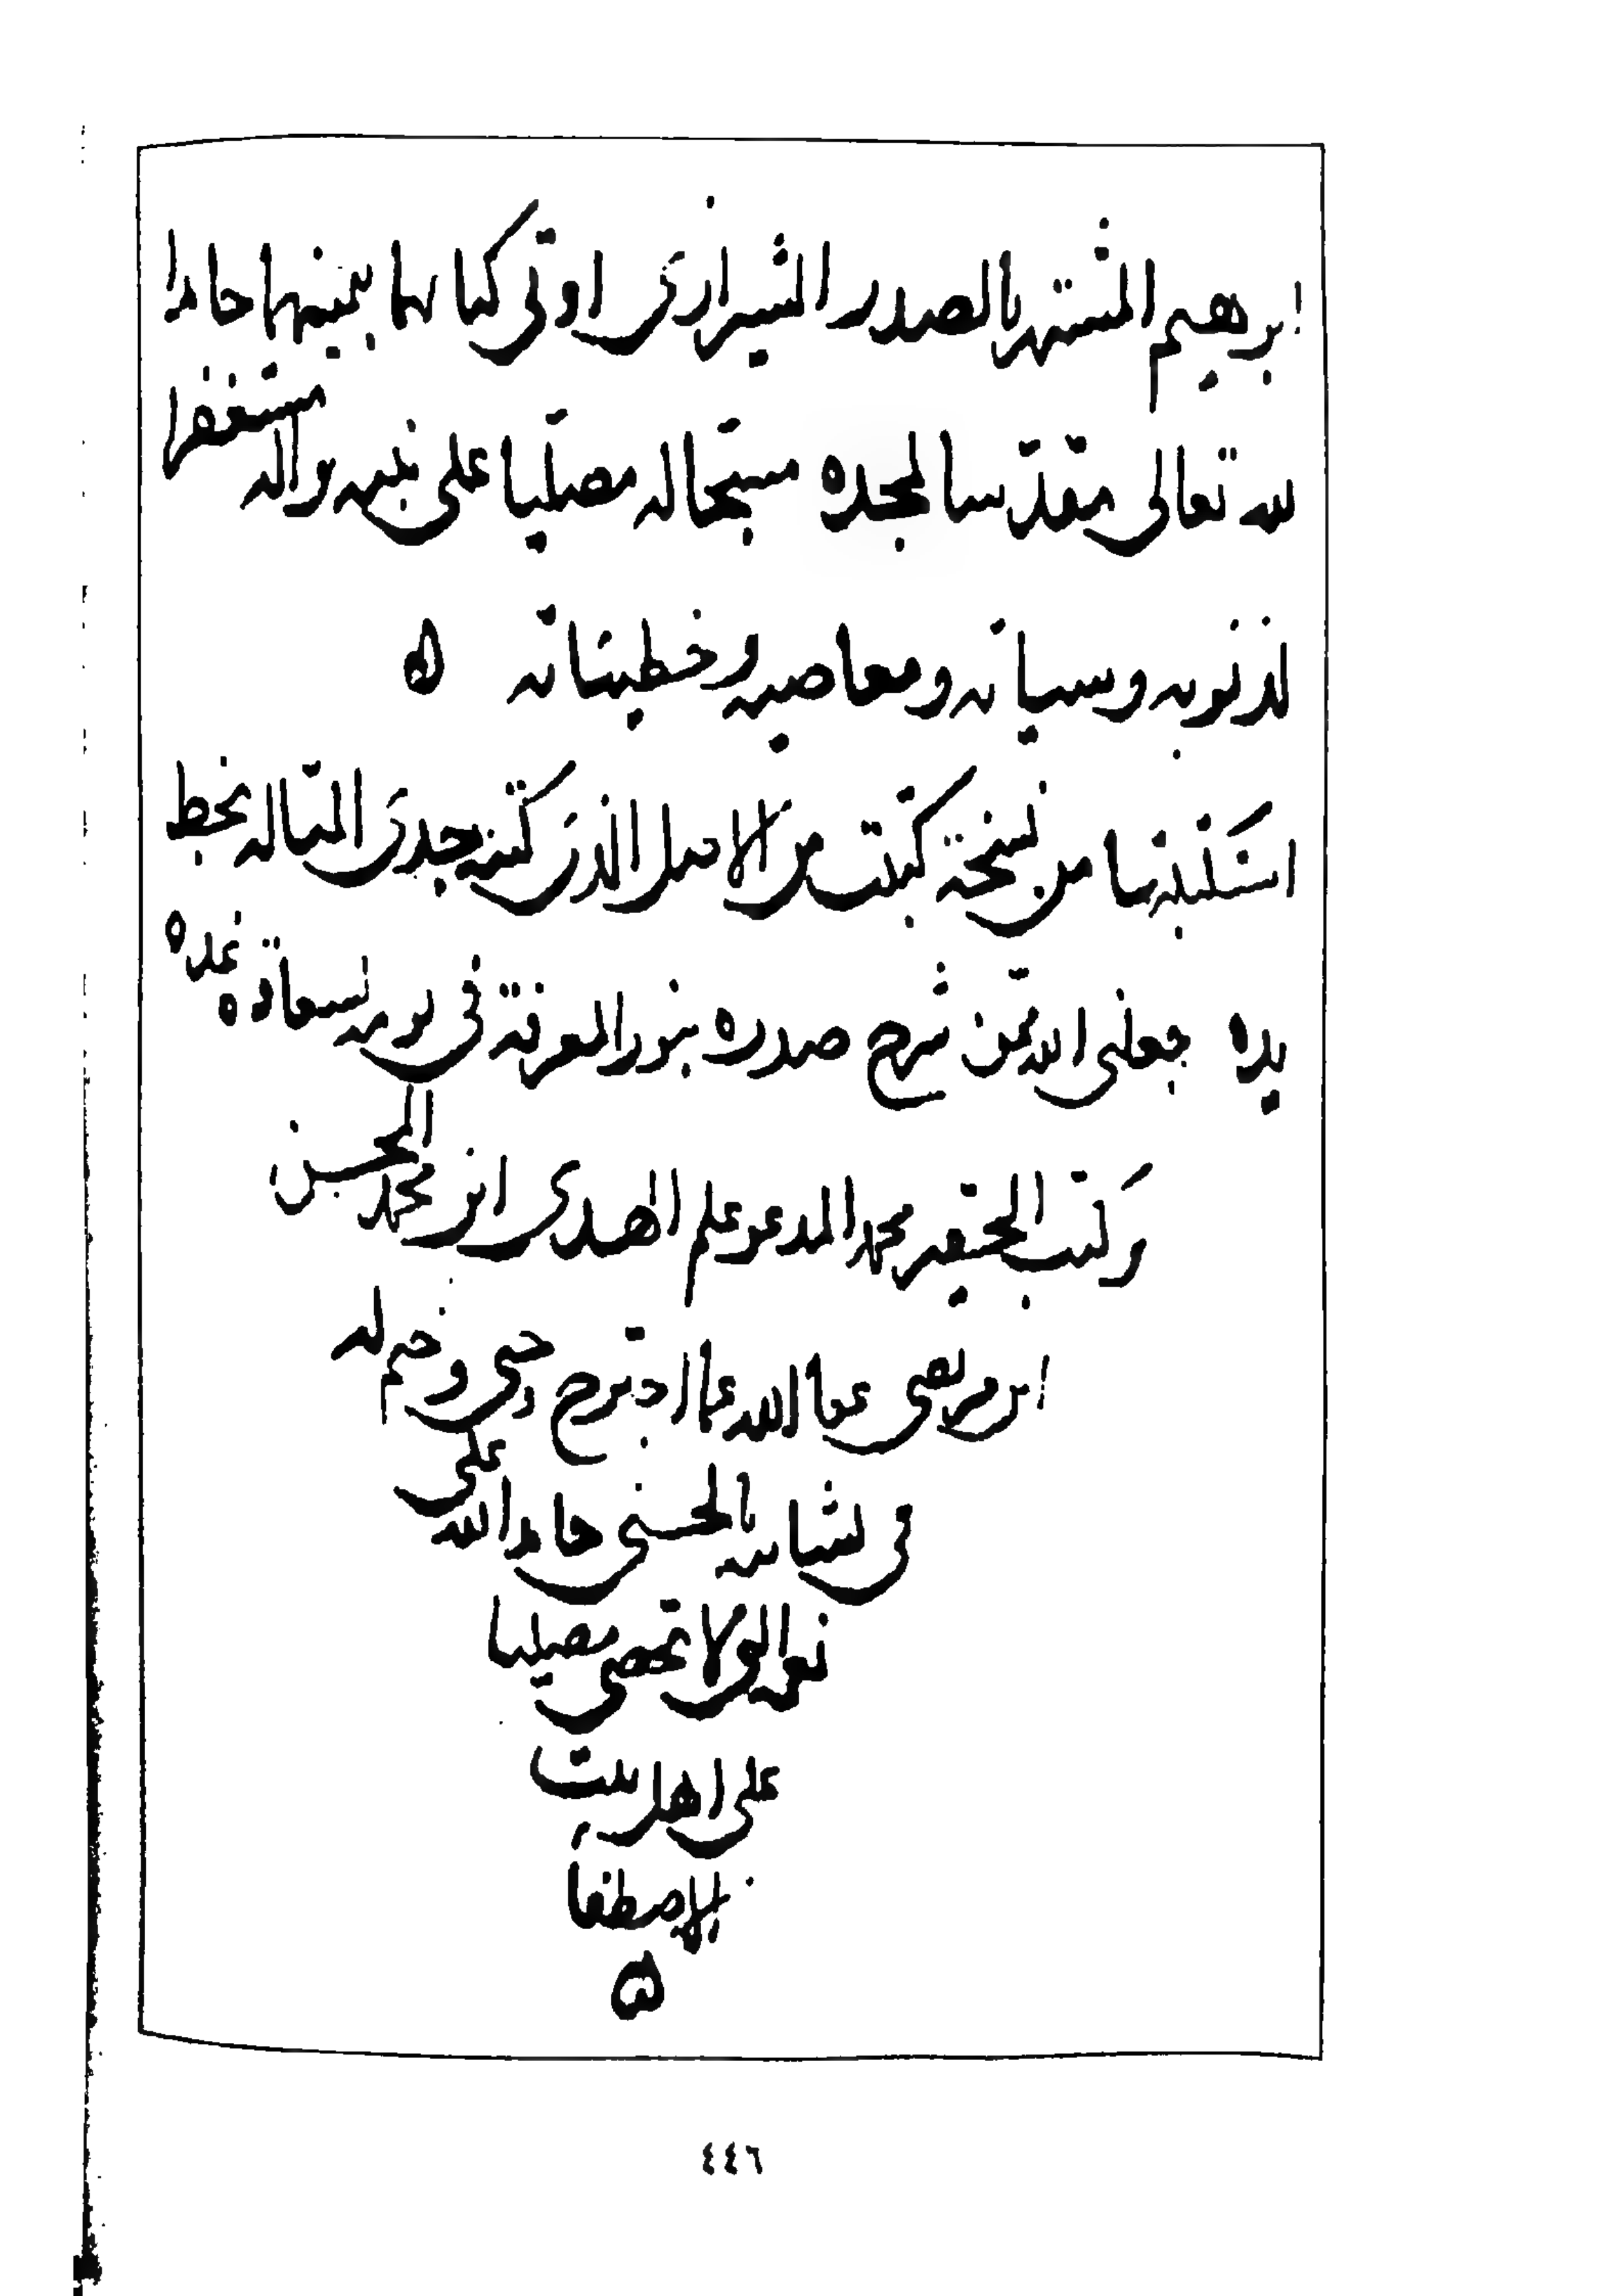 ابرهيم المشتهر بالصدر الشيرازى اوتى كتابهما بيمينهما حامدا
لله تعالى مقدّسا لمجده مسبّحا له مصلّيا على نبيه واله مستغفرا
لذنوبه وسيأته ومعاصيه وخطيئاته ه
استكتبتها من نسخة كتبت من الاصل الذى كتبه جدى المتاله بخط
يده جعلنى الله ممّن شرح صدره بنور المعرفة فى يومه لسعادة غده
وكتب الحقير محمد المدعو علم الهدى ابن محمد المحسن
ابن مرتضى عفا الله عما اجترح وختم له
فى نشاتيه بالحسنى حامدا لله على
نواله ولا تحصى مصليا
على اهل بيت
الاصطفاء
ه
٤٤٦